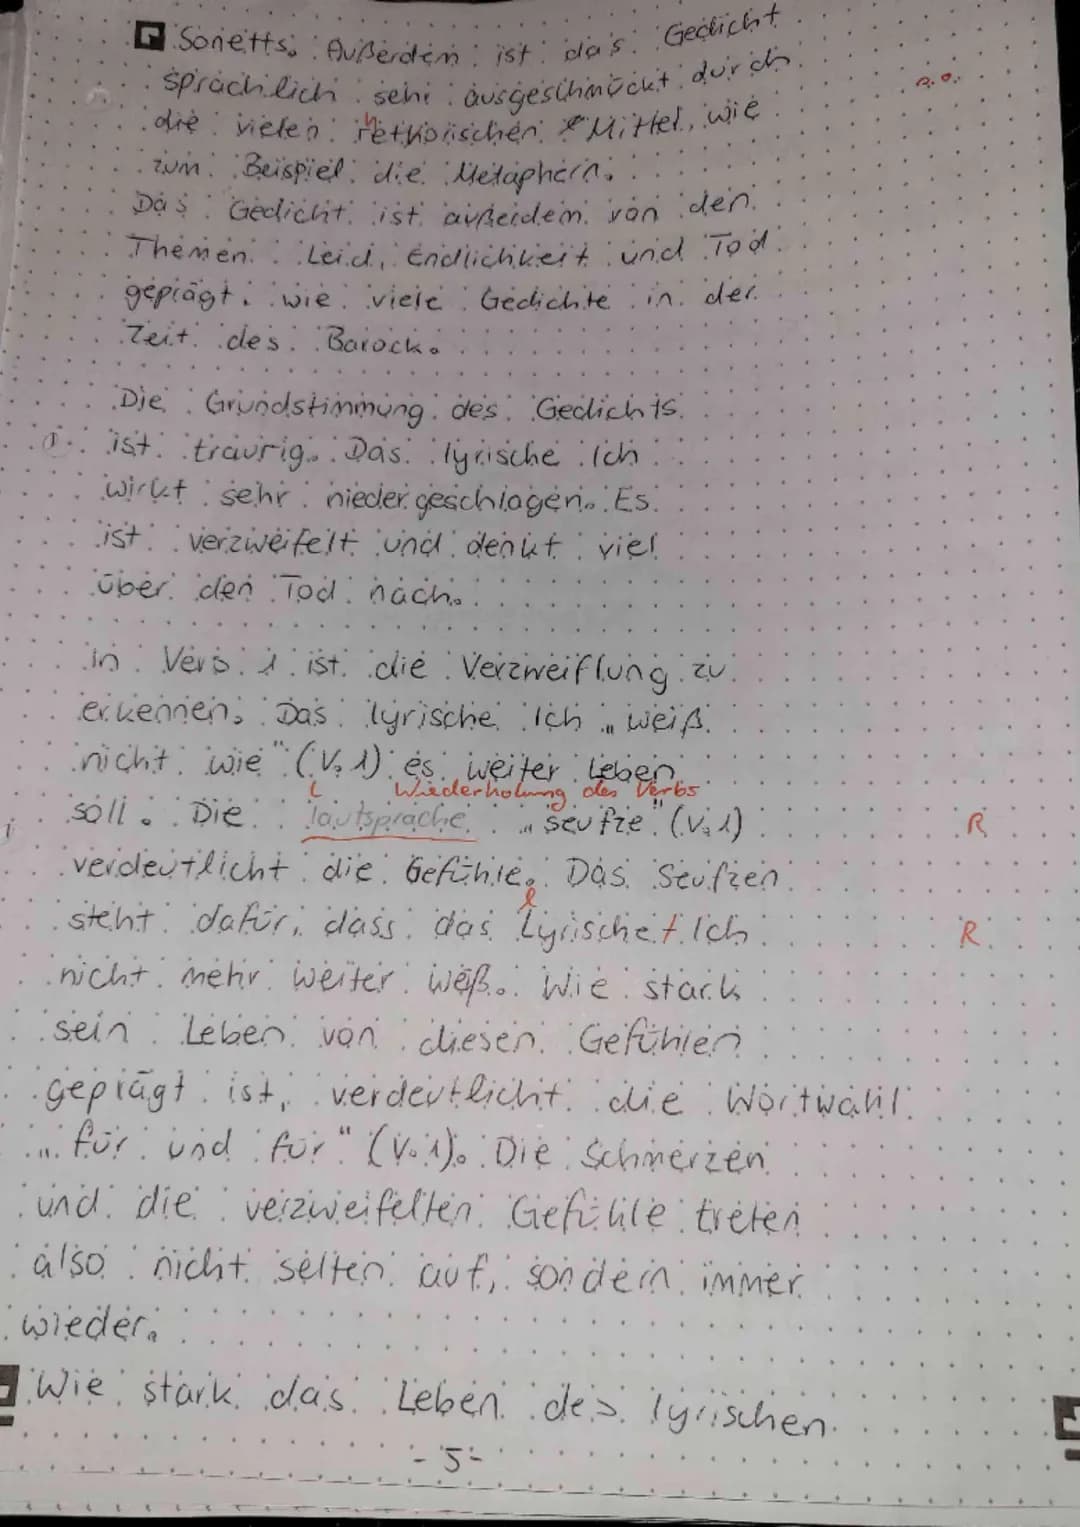 Sonetts. Außerdem ist das Gedicht
sprachlich sehr ausgeschmückt durch
die vielen rethorischen Mittel, wie
h
zum Beispiel die Metaphern.
Das Gedicht ist außerdem von den
Themen Leid, Endlichkeit und Tod
geprägt, wie viele Gedichte in der
Zeit des Barock.
Die Grundstimmung des Gedichts
ist traurig. Das lyrische Ich
wirkt sehr niedergeschlagen. Es
ist verzweifelt und denkt viel
über den Tod nach.
In Vers 1 ist die Verzweiflung zu
erkennen. Das lyrische Ich „weiß
nicht wie" (V. 1) es weiter Leben
L Wiederholung des Verbs
soll. Die lautsprache „seufze" (V. 1) R
verdeutlicht die Gefühle. Das Seufzen
l
steht dafür, dass das Lyrische Ich R
nicht mehr weiter weiß. Wie stark
sein Leben von diesen Gefühlen
geprägt ist, verdeutlicht die Wortwahl
„für und für" (V. 1). Die Schmerzen
und die verzweifelten Gefühle treten
also nicht selten auf, sondern immer
wieder.
Wie stark das Leben des lyrischen
- 5 -